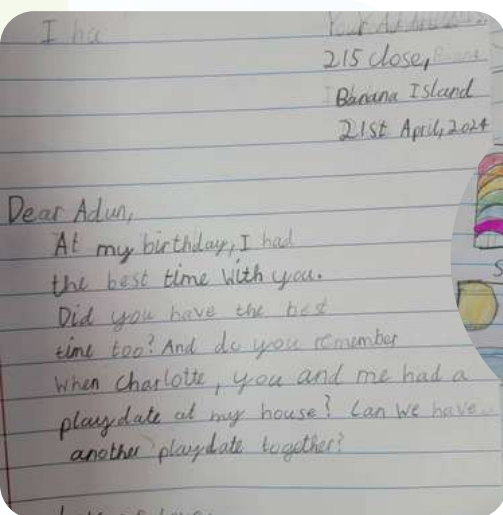 I ha
215 close,
Banana Island
21st April, 2024
Dear Adun,
At my birthday, I had
the best time with you.
Did you have the best
time too? And do you remember
when Charlotte, you and me had a
playdate at my house? Can we have
another playdate together?